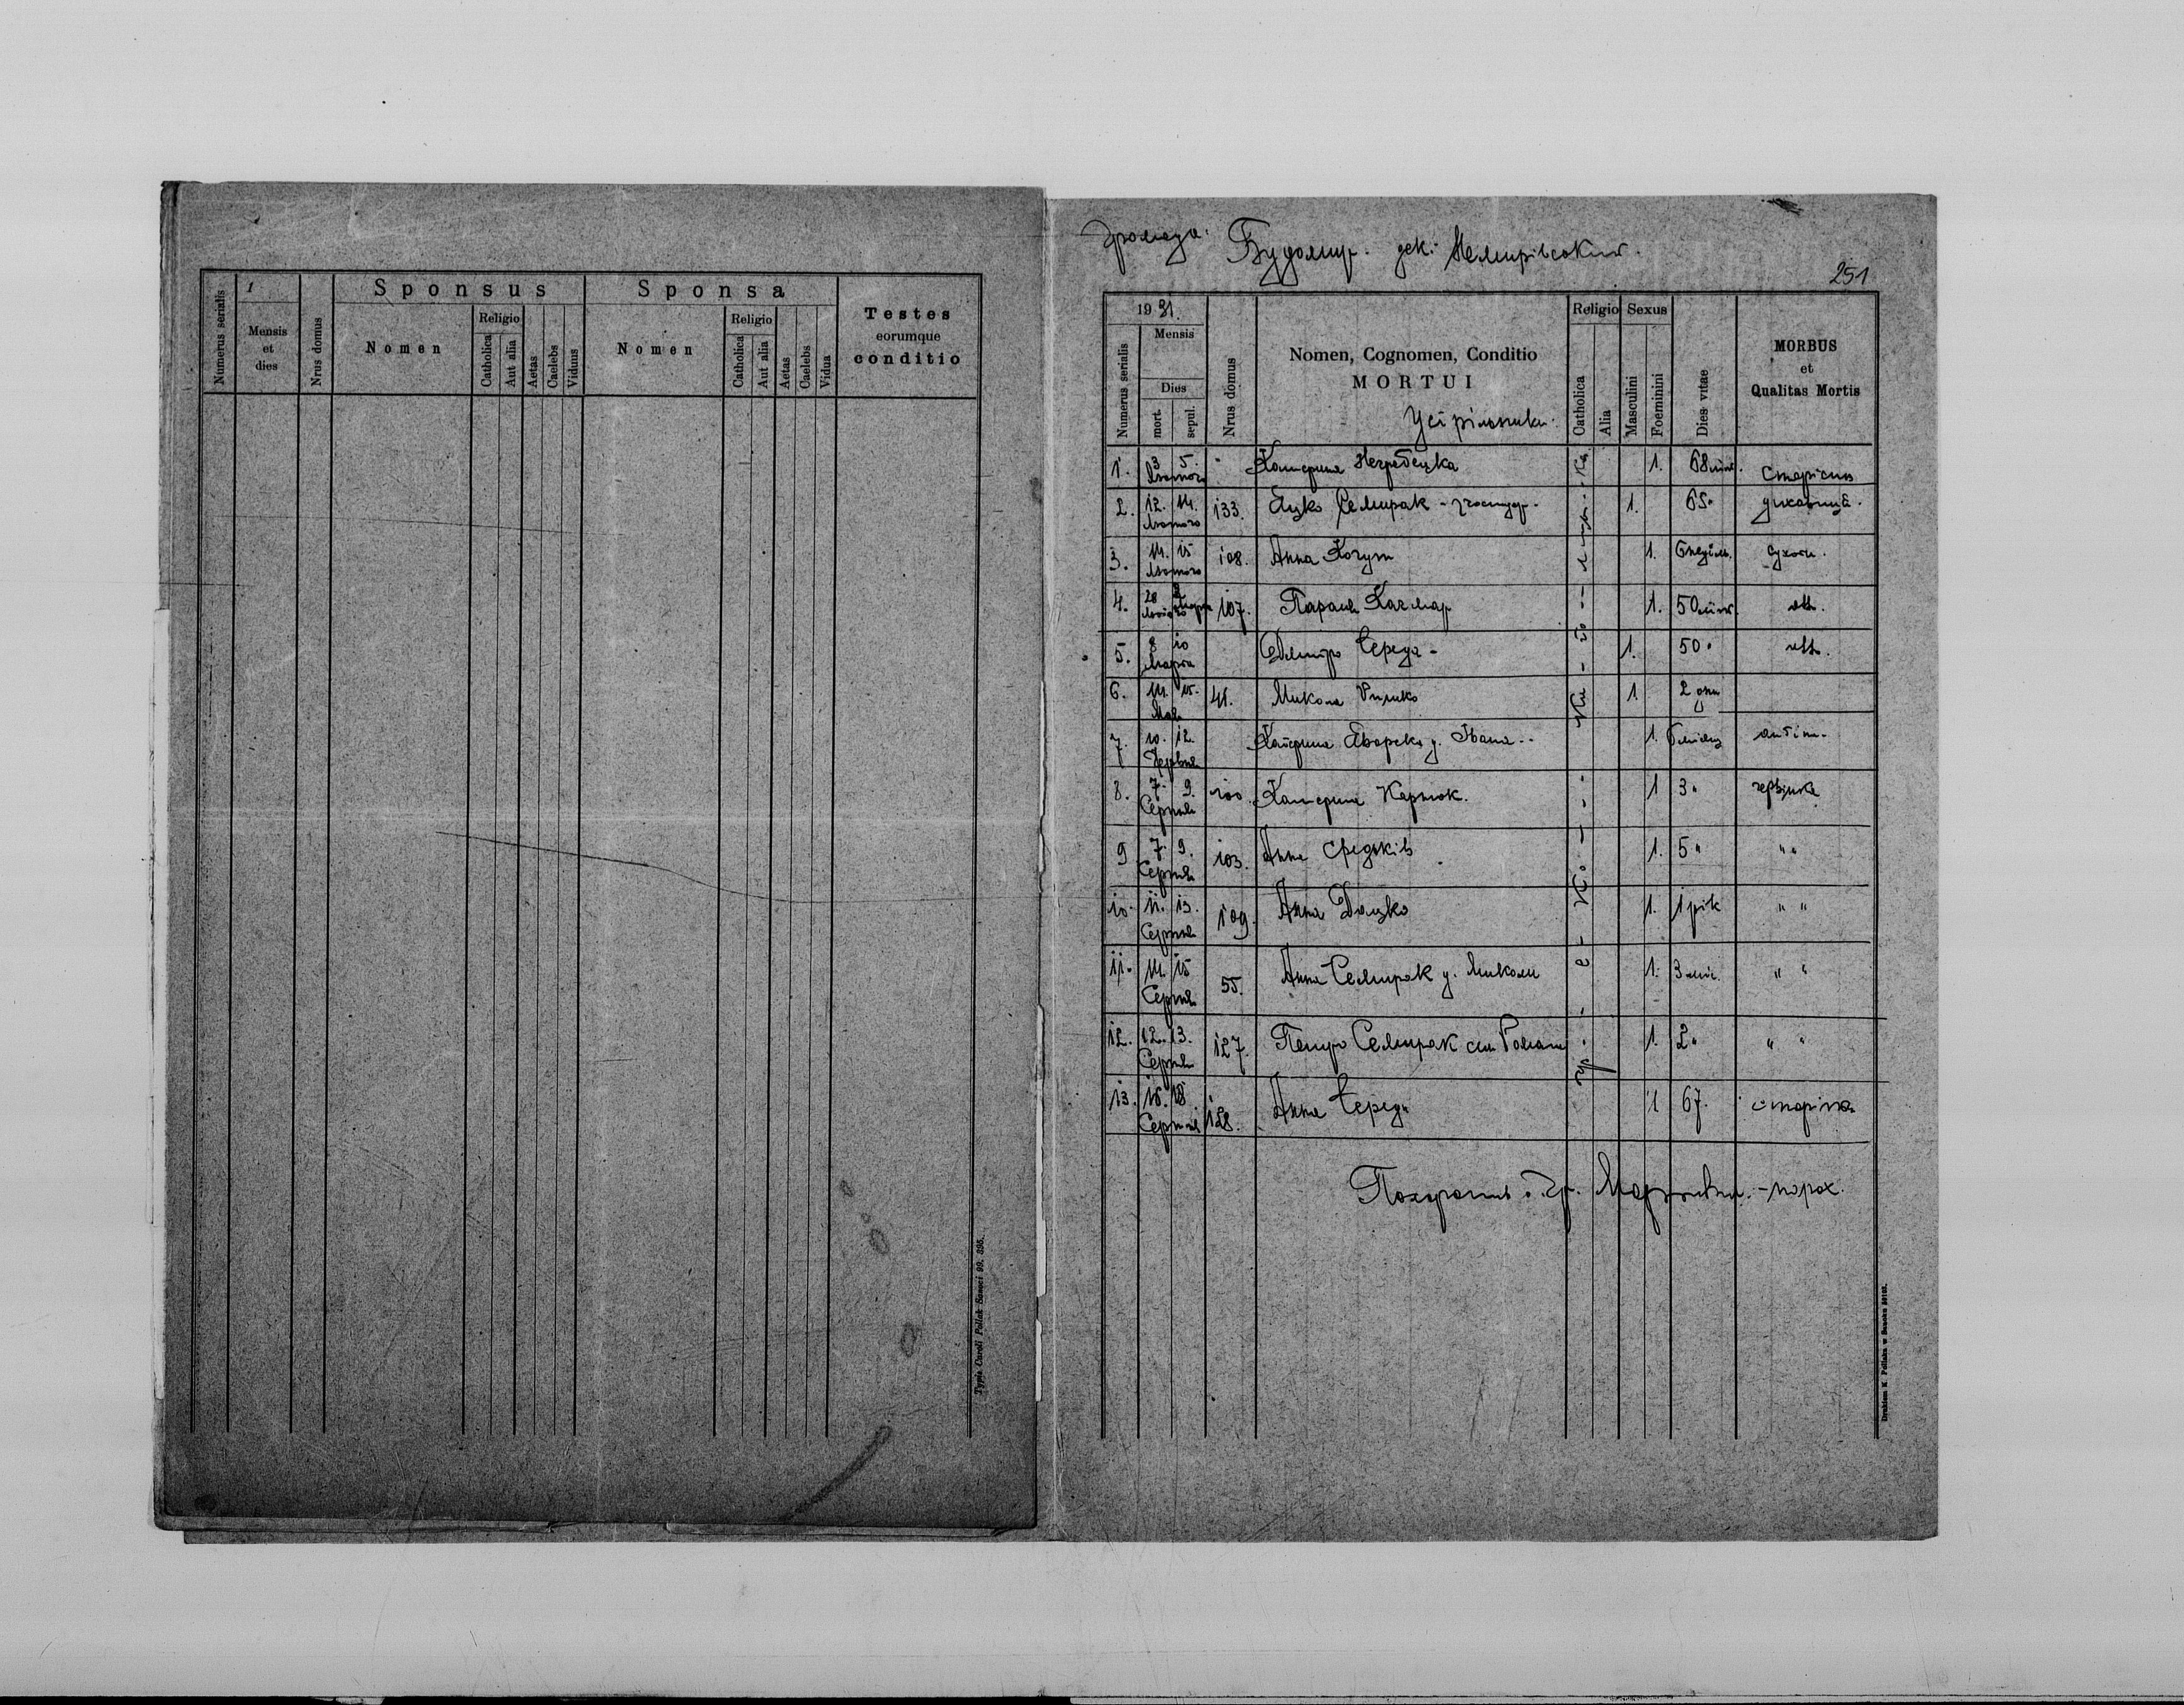 Numerus serialis
1
Mensis
et
dies
Nrus domus
Sponsus
Nomen
Religio
Catholica
Aut alia
Aetas
Caelebs
Viduus
Sponsa
Nomen
Religio
Catholica
Aut alia
Aetas
Caelebs
Vidua
Testes
eorumque
conditio
Typis Caroli Pollak Sanoci 99. 895.
Громада: Будомир. дек: Немирівський.
251
1931.
Numerus serialis
Mensis
Dies
mort.
sepul.
Nrus domus
Nomen, Cognomen, Conditio
MORTUI
Усі рільники.
Religio
Catholica
Alia
Sexus
Masculini
Foeminini
Dies vitae
MORBUS
et
Qualitas Mortis
1. 3 5. Лютого Катерина 1. 68 літ. Старість
2. 12. 14. Лютого 133. Яцко Семирак - господар. 1. 65 "
3. 14. 15 Лютого 108. Анна Когут 1. 6 неділь. сухоти.
4. 28 2 Лютого Марта 107. Параня Качмар 1. 50 літ.
5. 8 10 Марта Дмитро Череда - 1. 50 "
6. 14. 15. Мая 41. Микола 1. 2 дни
7. 10. 12. Червня Катерина Яворска д. Івана 1.
8. 7. 9. Серпня 100. Катерина Карпюк. 1 3 " червінка
9 7. 9. Серпня 103. Анна Средзків 1. 5 " " "
10. 11. 13. Серпня 109. Анна Дацко 1. 1 рік " "
11. 14. 15 Серпня 55. Анна Семирак д. Миколи 1. 3 міс. " "
12. 12. 13. Серпня 127. Петро Семирак син Романа 1. 2 " " "
13. 16. 18 Серпня 128. Анна Череда 1 67. старість
Похоронив о. Гр. - порох.
Drukiem K. Pollaka w Sanoku